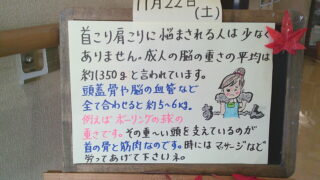 11月22日(土)
首こり肩こりに悩まされる人は少なく
ありません。成人の脳の重さの平均は
約1350gと言われています。
頭蓋骨や脳の血管など
全て合わせると約5~6kg。
例えばボーリングの球の
重さです。その重~い頭を支えているのが
首の骨と筋肉なのです。時にはマッサージなど
労ってあげて下さいネ。